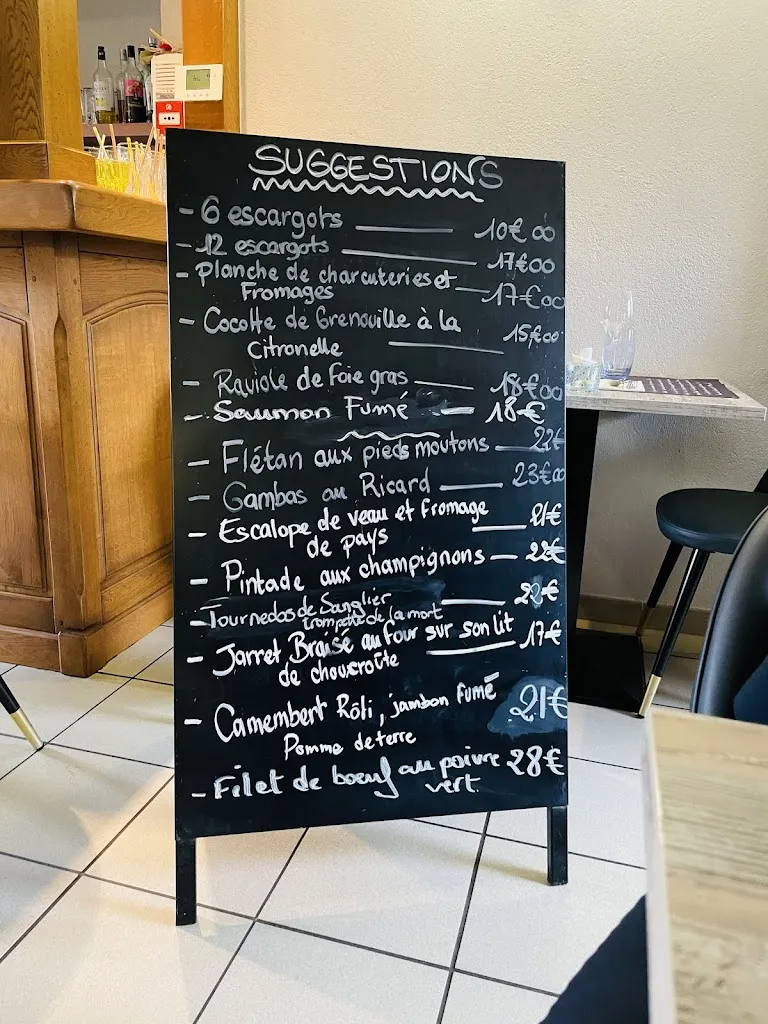 SUGGESTIONS
- 6 escargots 10€00
- 12 escargots 17€00
- Planche de charcuteries et
Fromages 17€00
- Cocotte de Grenouille à la 15€00
Citronelle
- Raviole de foie gras 18€00
- Saumon Fumé 18€
- Flétan aux pieds moutons 22€
- Gambas au Ricard 23€00
- Escalope de veau et fromage 21€
de pays
- Pintade aux champignons 22€
- Tournedos de Sanglier 22€
trompette de la mort
- Jarret Braisé au four sur son lit 17€
de chouxcroûte
- Camembert Rôli, jambon fumé 21€
Pomme de terre
- Filet de boeuf au poivre 28€
vert